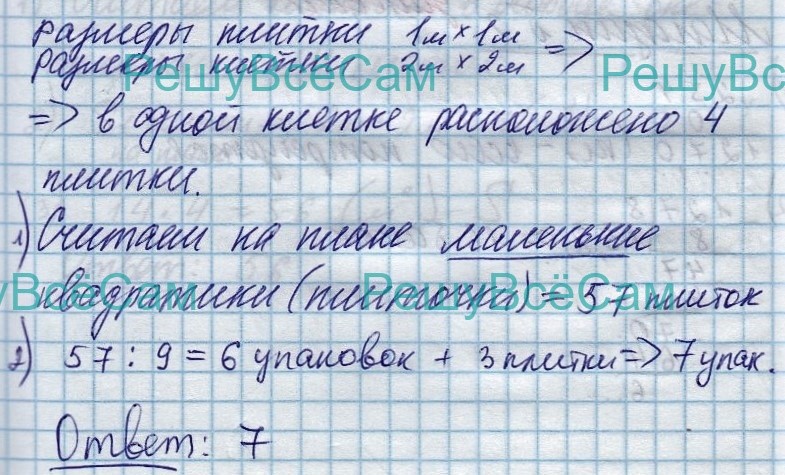 размеры плитки 1м × 1м
размеры клетки 2м × 2м =>
РешуВсёСам РешуВс
=> в одной клетке расположено 4
плитки.
1) Считаем на плане маленькие
уВсёСам РешуВсёСам
квадратики (плиточки) = 57 плиток
2) 57 : 9 = 6 упаковок + 3 плитки => 7 упак.
Ответ: 7